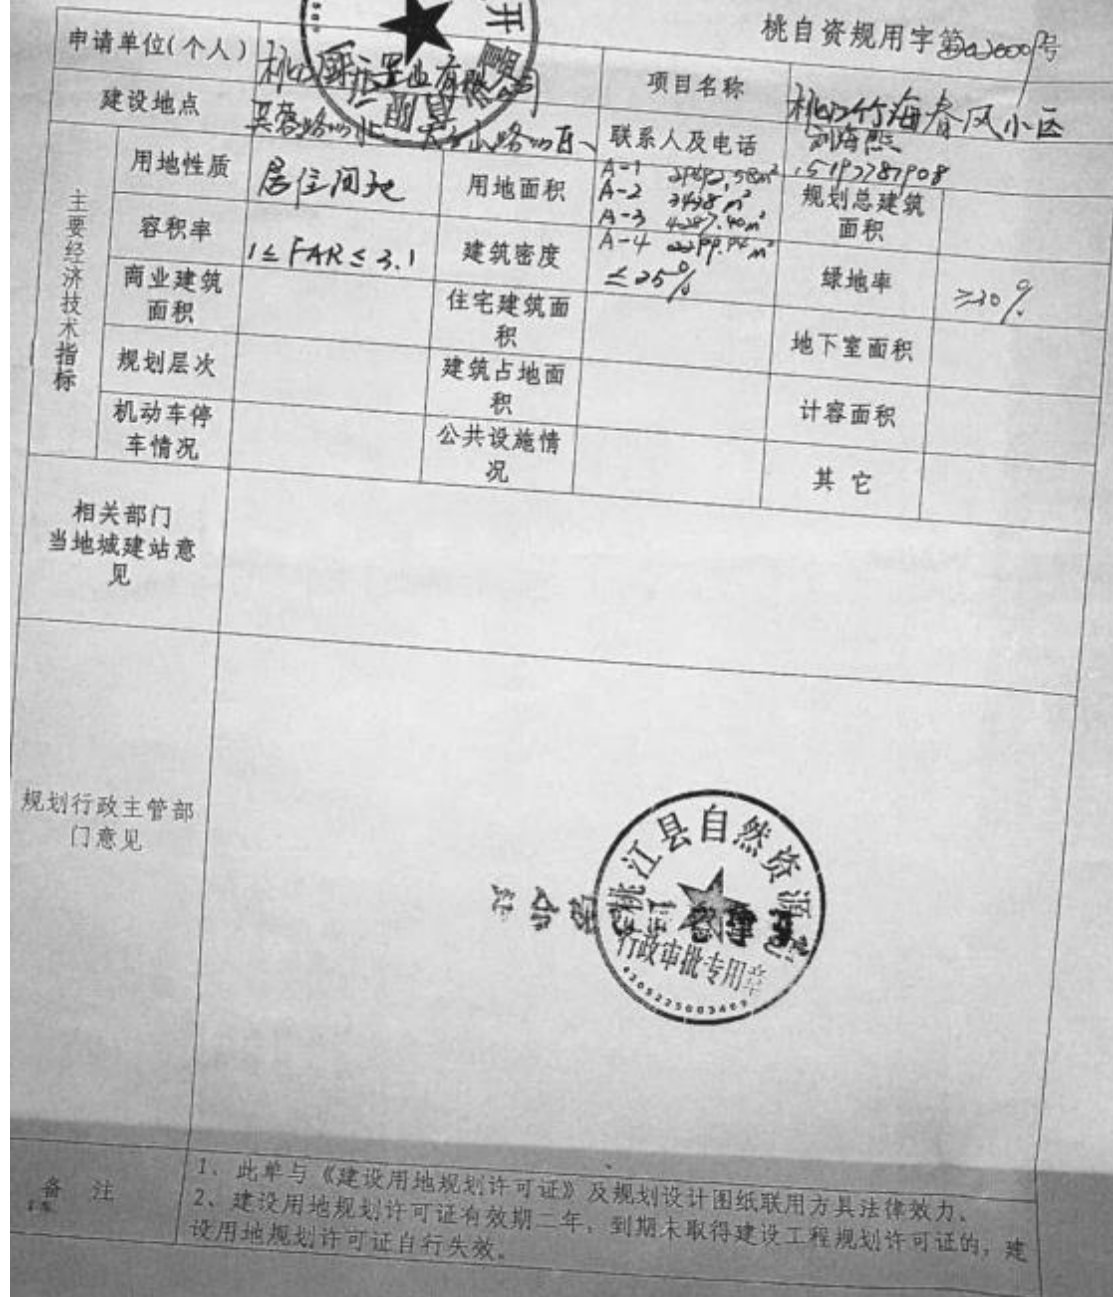 桃自资规用字第 号
申请单位(个人)
置业有限公司
项目名称
桃江竹海春风小区
建设地点
芙蓉路以北、
联系人及电话
主要经济技术指标
用地性质
居住用地
用地面积
A-1
A-2
A-3
A-4
规划总建筑
面积
容积率
1≤FAR≤3.1
建筑密度
≤25%
绿地率
≥30%
商业建筑
面积
住宅建筑面
积
地下室面积
规划层次
建筑占地面
积
计容面积
机动车停
车情况
公共设施情
况
其它
相关部门
当地城建站意
见
规划行政主管部
门意见
桃江县自然资源
行政审批专用章
备注
1、此单与《建设用地规划许可证》及规划设计图纸联用方具法律效力、
2、建设用地规划许可证有效期二年，到期未取得建设工程规划许可证的，建
设用地规划许可证自行失效。